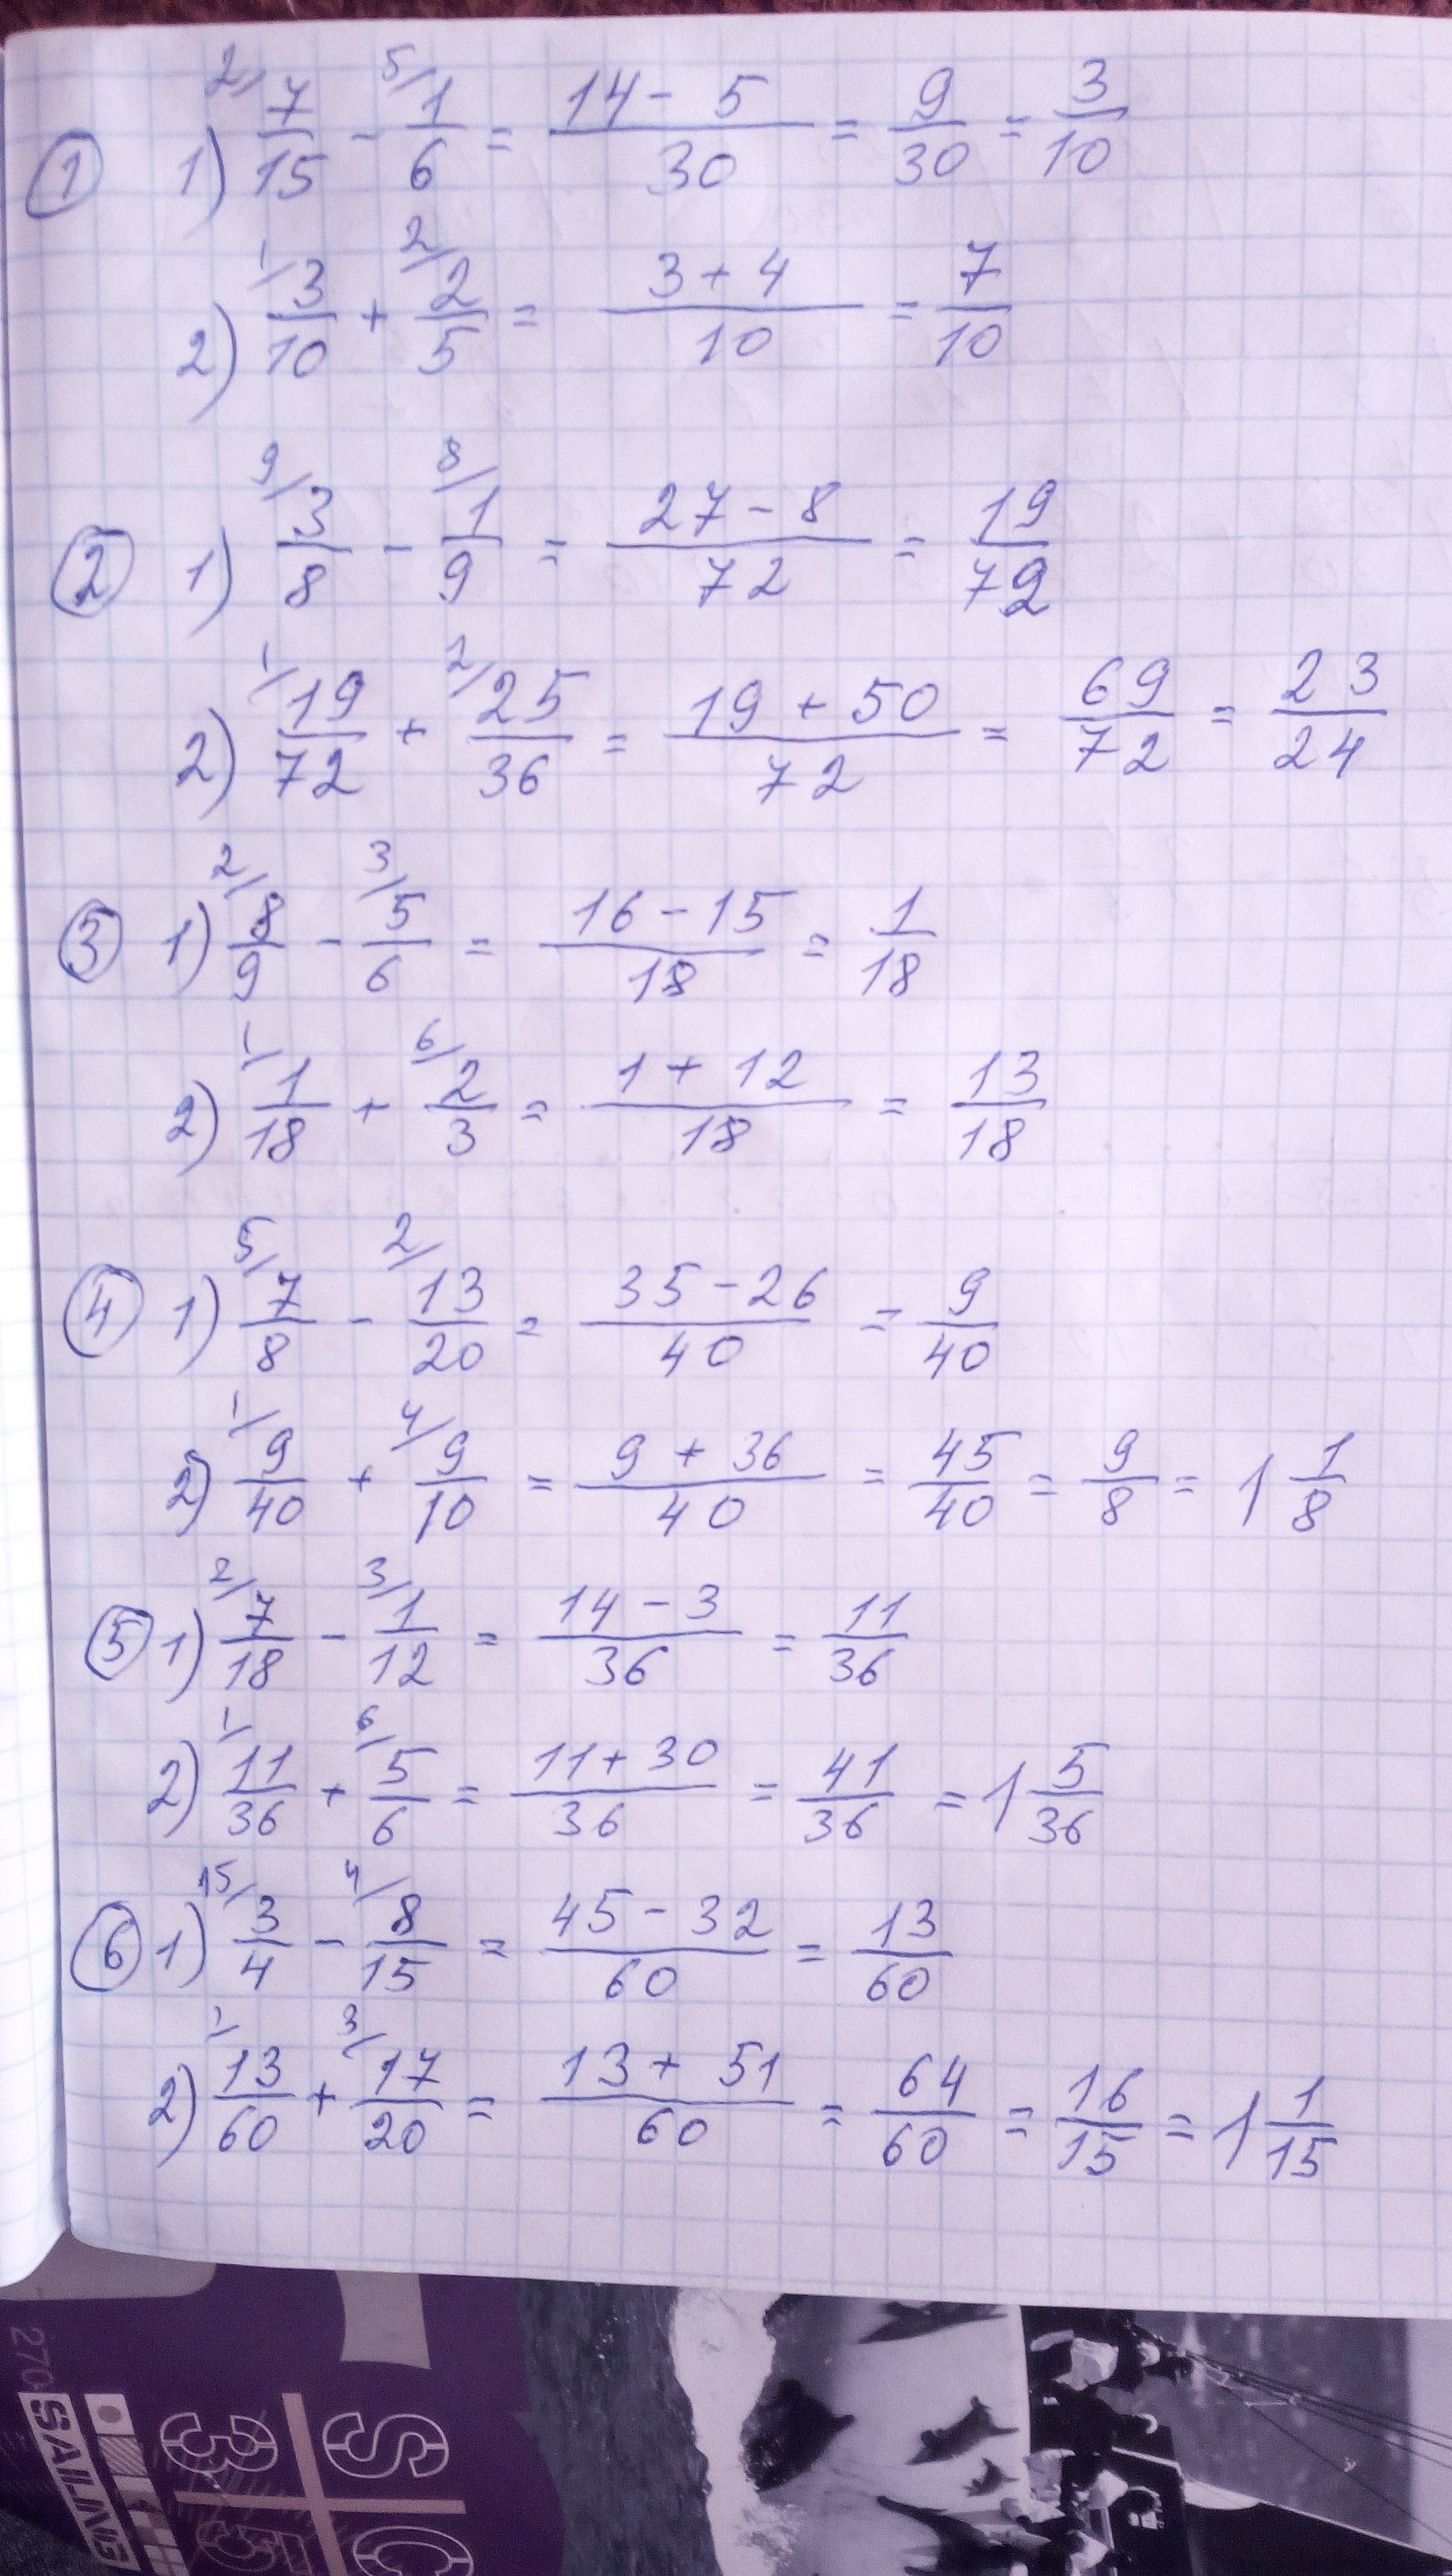 ① 1) 2/ 7/15 - 5/ 1/6 = (14 - 5)/30 = 9/30 = 3/10
2) 1/ 3/10 + 2/ 2/5 = (3 + 4)/10 = 7/10
② 1) 9/ 3/8 - 8/ 1/9 = (27 - 8)/72 = 19/72
2) 1/ 19/72 + 2/ 25/36 = (19 + 50)/72 = 69/72 = 23/24
③ 1) 2/ 8/9 - 3/ 5/6 = (16 - 15)/18 = 1/18
2) 1/ 1/18 + 6/ 2/3 = (1 + 12)/18 = 13/18
④ 1) 5/ 7/8 - 2/ 13/20 = (35 - 26)/40 = 9/40
2) 1/ 9/40 + 4/ 9/10 = (9 + 36)/40 = 45/40 = 9/8 = 1 1/8
⑤ 1) 2/ 7/18 - 3/ 1/12 = (14 - 3)/36 = 11/36
2) 1/ 11/36 + 6/ 5/6 = (11 + 30)/36 = 41/36 = 1 5/36
⑥ 1) 15/ 3/4 - 4/ 8/15 = (45 - 32)/60 = 13/60
2) 1/ 13/60 + 3/ 17/20 = (13 + 51)/60 = 64/60 = 16/15 = 1 1/15
270
SAILING